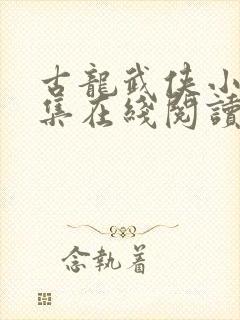 古龍武俠小
集在綫閱讀
念執着